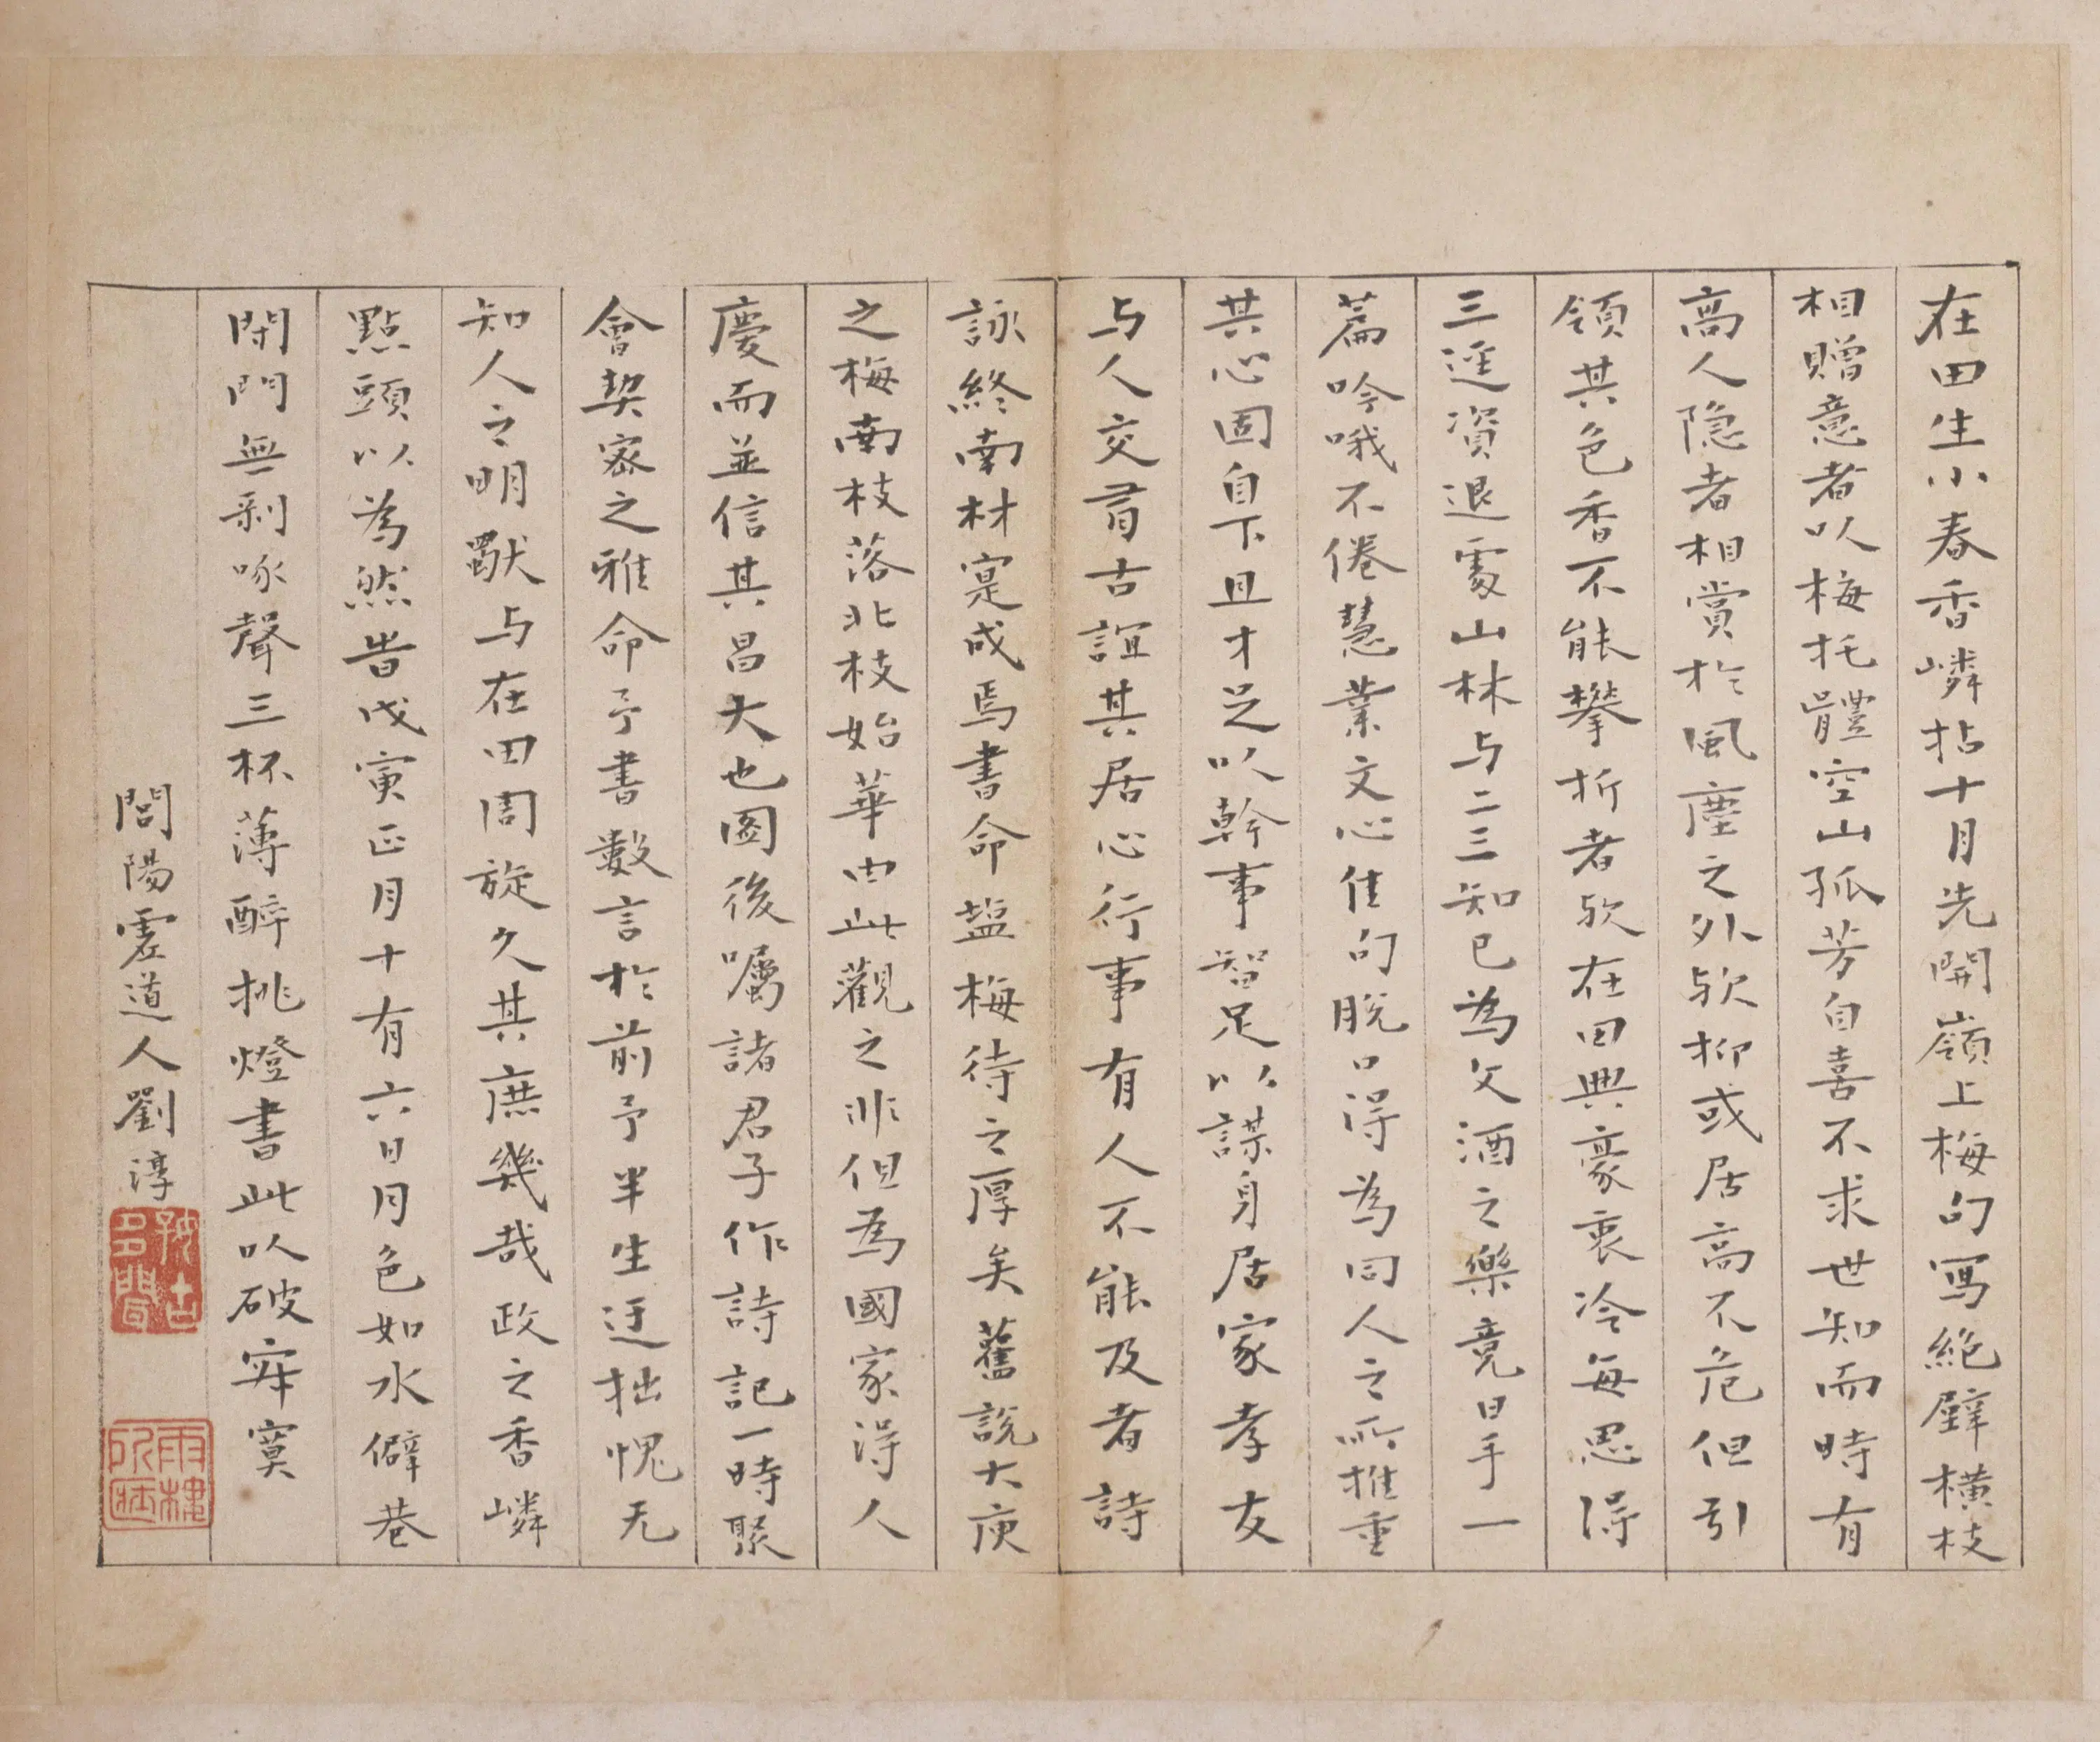 在田生小春香嶙拈十月先開嶺上梅句寫絶壁橫枝
相贈意者以梅托體空山孤芳自喜不求世知而時有
高人隐者相賞於風塵之外欤抑或居高不危但引
領其色香不能攀折者欤在田興豪衷冷每思得
三逕資退處山林与二三知已為文酒之樂竟日手一
篇吟哦不倦慧業文心佳句脫口得為同人之所推重
其心固自下且才足以幹事智足以謀身居家孝友
与人交有古誼其居心行事有人不能及者詩
詠終南材寔成焉書命塩梅待之厚矣舊說大庾
之梅南枝落北枝始華由此觀之非但為國家得人
慶而並信其昌大也图後囑諸君子作詩記一時聚
會契密之雅命予書數言於前予半生迂拙愧无
知人之明猷与在田周旋久其庶幾哉政之香嶙
點頭以為然告戊寅正月十有六日月色如水僻巷
閉門無剥啄聲三杯薄醉挑燈書此以破寂寞
問陽雲道人劉淳